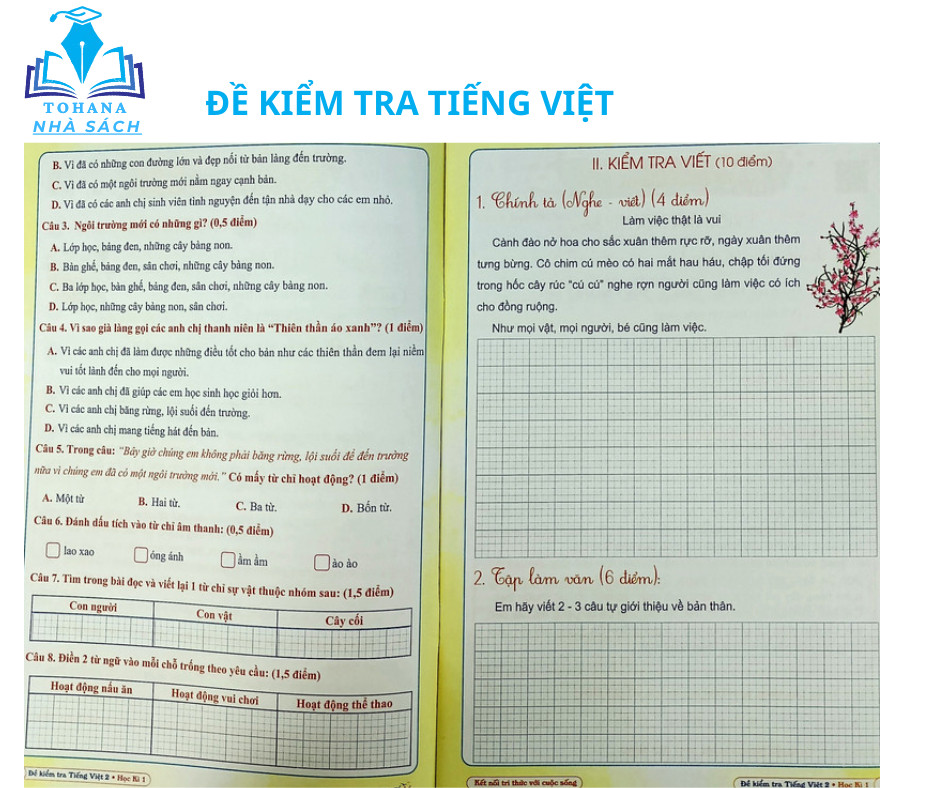 TOHANA
NHÀ SÁCH
ĐỀ KIỂM TRA TIẾNG VIỆT
B. Vì đã có những con đường lớn và đẹp nối từ bản làng đến trường.
C. Vì đã có một ngôi trường mới nằm ngay cạnh bản.
D. Vì đã có các anh chị sinh viên tình nguyện đến tận nhà dạy cho các em nhỏ.
Câu 3. Ngôi trường mới có những gì? (0,5 điểm)
A. Lớp học, bảng đen, những cây bàng non.
B. Bàn ghế, bảng đen, sân chơi, những cây bàng non.
C. Ba lớp học, bàn ghế, bảng đen, sân chơi, những cây bàng non.
D. Lớp học, những cây bàng non, sân chơi.
Câu 4. Vì sao già làng gọi các anh chị thanh niên là “Thiên thần áo xanh”? (1 điểm)
A. Vì các anh chị đã làm được những điều tốt cho bản như các thiên thần đem lại niềm
vui tốt lành đến cho mọi người.
B. Vì các anh chị đã giúp các em học sinh học giỏi hơn.
C. Vì các anh chị băng rừng, lội suối đến trường.
D. Vì các anh chị mang tiếng hát đến bản.
Câu 5. Trong câu: "Bây giờ chúng em không phải băng rừng, lội suối để đến trường
nữa vì chúng em đã có một ngôi trường mới." Có mấy từ chỉ hoạt động? (1 điểm)
A. Một từ B. Hai từ. C. Ba từ. D. Bốn từ.
Câu 6. Đánh dấu tích vào từ chỉ âm thanh: (0,5 điểm)
lao xao óng ánh ầm ầm ào ào
Câu 7. Tìm trong bài đọc và viết lại 1 từ chỉ sự vật thuộc nhóm sau: (1,5 điểm)
Con người Con vật Cây cối
Câu 8. Điền 2 từ ngữ vào mỗi chỗ trống theo yêu cầu: (1,5 điểm)
Hoạt động nấu ăn Hoạt động vui chơi Hoạt động thể thao
Đề kiểm tra Tiếng Việt 2 • Học Kì 1
II. KIỂM TRA VIẾT (10 điểm)
1. Chính tả (Nghe - viết) (4 điểm)
Làm việc thật là vui
Cành đào nở hoa cho sắc xuân thêm rực rỡ, ngày xuân thêm
tưng bừng. Cô chim cú mèo có hai mắt hau háu, chập tối đứng
trong hốc cây rúc "cú cú" nghe rợn người cũng làm việc có ích
cho đồng ruộng.
Như mọi vật, mọi người, bé cũng làm việc.
2. Tập làm văn (6 điểm):
Em hãy viết 2 - 3 câu tự giới thiệu về bản thân.
Kết nối tri thức với cuộc sống
Đề kiểm tra Tiếng Việt 2 • Học Kì 1